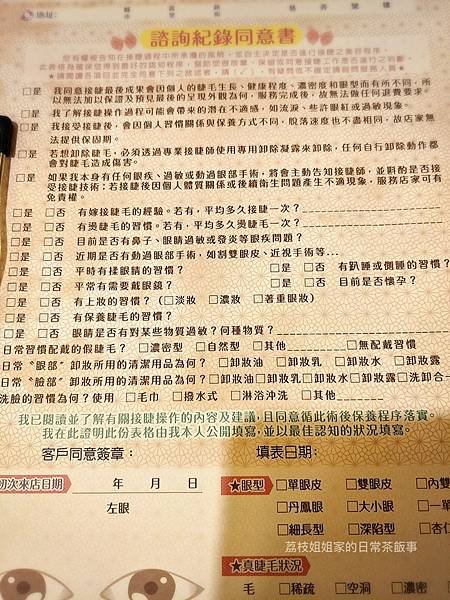 地址:
諮詢紀錄同意書
□是 我同意接睫最後成果會因個人的睫毛生長、健康程度、濃密度和眼型而有所不同，所
以無法加以保證及預見最後的呈現外觀為何，服務完成後，故無法做任何退費要求。
□是 我了解接睫操作過程可能會帶來的潛在不適感，如流淚、些許眼紅或過敏現象。
□是 我接受接睫後，會因個人習慣關係與保養方式不同，脫落速度也不盡相同，故店家無
法提供保固期。
□是 若想卸除睫毛，必須透過專業接睫師使用專用卸除凝露來卸除，任何自行卸除動作都
會對睫毛造成傷害。
□是 如果我本身有任何眼疾、過敏或動過眼部手術，將會主動告知接睫師，並斟酌是否接
受接睫技術；若接睫後因個人體質關係或後續衛生問題產生不適現象，服務店家可有
免責權。
□是 □否 有嫁接睫毛的經驗。若有，平均多久接睫一次？
□是 □否 有燙睫毛的習慣。若有，平均多久燙睫毛一次？
□是 □否 目前是否有鼻子、眼睛過敏或發炎等眼疾問題？
□是 □否 近期是否有動過眼部手術，如割雙眼皮、近視手術等...
□是 □否 平時有揉眼睛的習慣？ □是 □否 有趴睡或側睡的習慣？
□是 □否 平常有需要戴眼鏡？ □是 □否 目前是否懷孕？
□是 □否 有上妝的習慣？（□淡妝 □濃妝 □著重眼妝）
□是 □否 有保養睫毛的習慣？
□是 □否 眼睛是否有對某些物質過敏？何種物質？
日常習慣配戴的假睫毛？ □濃密型 □自然型 □其他 □無配戴習慣
日常〝眼部〞卸妝所用的清潔用品為何？ □卸妝油 □卸妝乳 □卸妝水 □卸妝露
日常〝臉部〞卸妝所用的清潔用品為何？□卸妝油□卸妝乳□卸妝水□卸妝露□洗卸合一
洗臉的習慣為何？使用 □毛巾 □撥水式 □淋浴沖洗 □其他
我已閱讀並了解有關接睫操作的內容及建議，且同意循此術後保養程序落實。
我在此證明此份表格由我本人公開填寫，並以最佳認知的狀況填寫。
客戶同意簽章： 填表日期：
初次來店日期 年 月 日
左眼
★眼型 □單眼皮 □雙眼皮 □內雙
□丹鳳眼 □大小眼 □一單
□細長型 □深陷型 □杏仁
荔枝姐姐家的日常茶飯事
★真睫毛狀況
毛 □稀疏 □空洞 □濃密